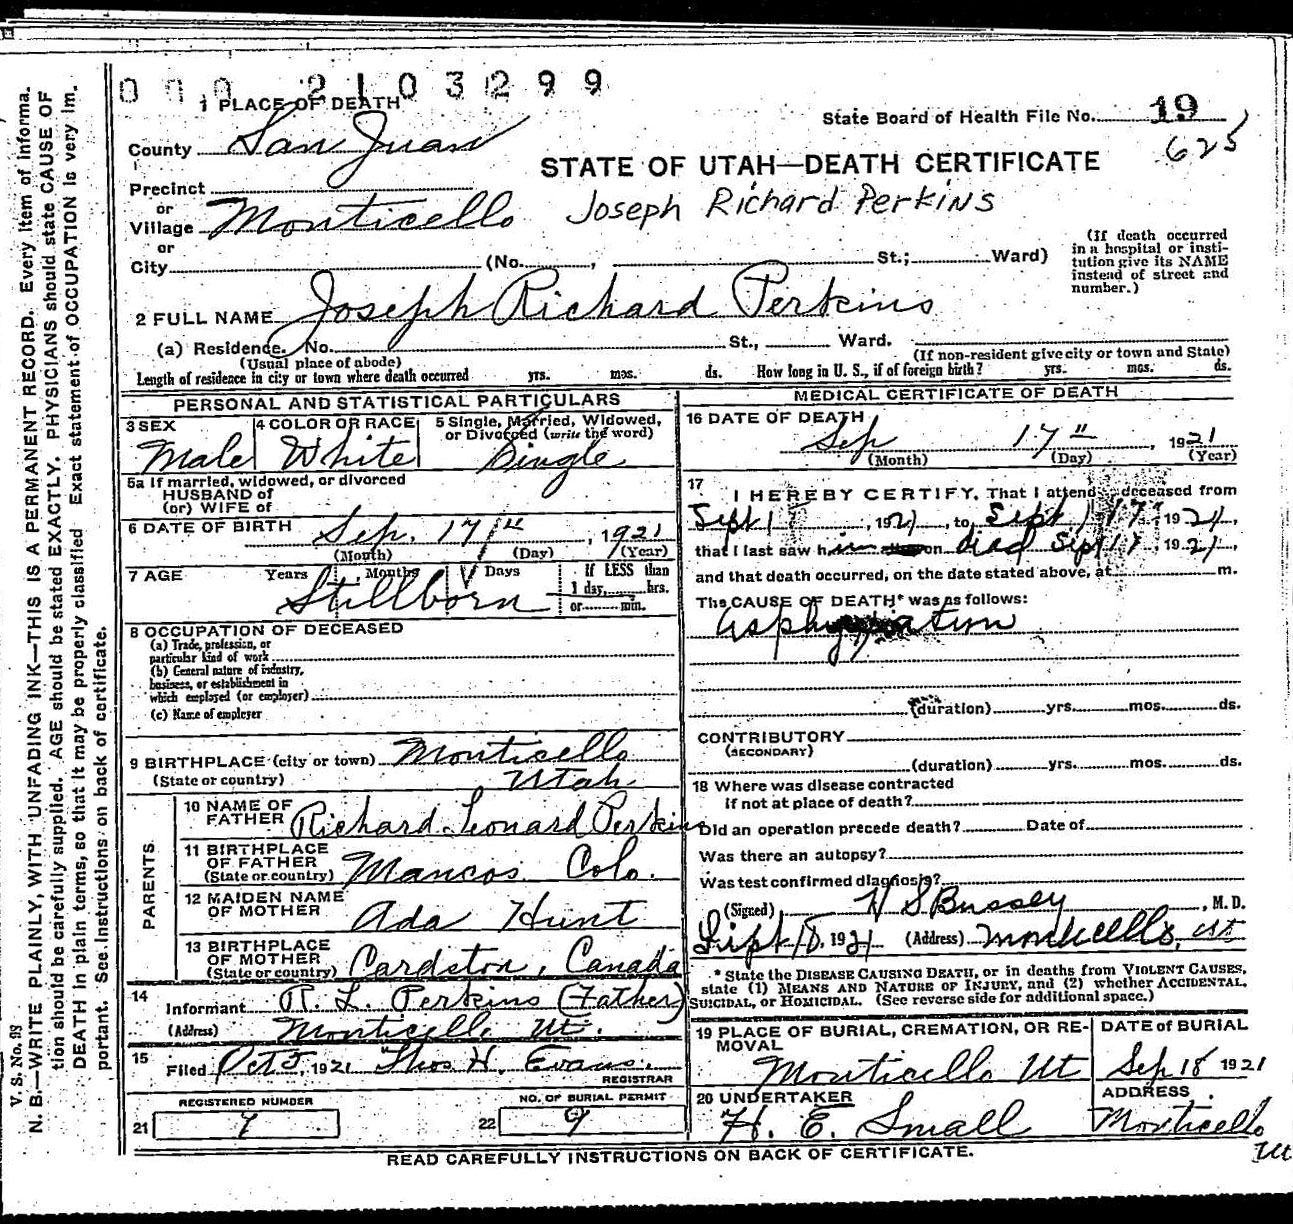 000 2103299
1 PLACE OF DEATH
State Board of Health File No. 19
625
County San Juan
STATE OF UTAH—DEATH CERTIFICATE
Precinct
or
Village Monticello Joseph Richard Perkins
or
City (No. , St.; Ward)
(If death occurred
in a hospital or insti-
tution give its NAME
instead of street and
number.)
2 FULL NAME Joseph Richard Perkins
(a) Residence. No. St., Ward.
(Usual place of abode) (If non-resident give city or town and State)
Length of residence in city or town where death occurred yrs. mos. ds. How long in U. S., if of foreign birth? yrs. mos. ds.
PERSONAL AND STATISTICAL PARTICULARS
3 SEX 4 COLOR OR RACE 5 Single, Married, Widowed,
or Divorced (write the word)
Male White Single
5a If married, widowed, or divorced
HUSBAND of
(or) WIFE of
6 DATE OF BIRTH Sep. 17th, 1921
(Month) (Day) (Year)
7 AGE Years Months Days If LESS than
1 day, hrs.
or min.
Stillborn
8 OCCUPATION OF DECEASED
(a) Trade, profession, or
particular kind of work
(b) General nature of industry,
business, or establishment in
which employed (or employer)
(c) Name of employer
9 BIRTHPLACE (city or town) Monticello
(State or country) Utah
PARENTS
10 NAME OF
FATHER Richard Leonard Perkins
11 BIRTHPLACE
OF FATHER
(State or country) Mancos Colo.
12 MAIDEN NAME
OF MOTHER Ada Hunt
13 BIRTHPLACE
OF MOTHER
(State or country) Cardston, Canada
14 Informant R. L. Perkins (Father)
(Address) Monticello Ut.
15 Filed Oct 5, 1921 Thos H. Evans.
REGISTRAR
REGISTERED NUMBER NO. OF BURIAL PERMIT
21 7 22 9
MEDICAL CERTIFICATE OF DEATH
16 DATE OF DEATH
Sep 17", 1921
(Month) (Day) (Year)
17 I HEREBY CERTIFY, That I attend deceased from
Sept 1, 1921, to Sept 17, 1921,
that I last saw him on dead Sept 17, 1921,
and that death occurred, on the date stated above, at m.
The CAUSE OF DEATH* was as follows:
asphyxiation
(duration) yrs. mos. ds.
CONTRIBUTORY
(SECONDARY)
(duration) yrs. mos. ds.
18 Where was disease contracted
if not at place of death?
Did an operation precede death? Date of
Was there an autopsy?
Was test confirmed diagnosis?
(Signed) H S Bussey, M. D.
Sept 18, 1921 (Address) Monticello, Ut
* State the DISEASE CAUSING DEATH, or in deaths from VIOLENT CAUSES,
state (1) MEANS AND NATURE OF INJURY, and (2) whether ACCIDENTAL,
SUICIDAL, or HOMICIDAL. (See reverse side for additional space.)
19 PLACE OF BURIAL, CREMATION, OR RE-
MOVAL
Monticello Ut
DATE of BURIAL
Sep 18 1921
20 UNDERTAKER
H. E. Small
ADDRESS
Monticello
Ut
READ CAREFULLY INSTRUCTIONS ON BACK OF CERTIFICATE.
V. S. No. 98
N. B.—WRITE PLAINLY, WITH UNFADING INK—THIS IS A PERMANENT RECORD. Every item of informa-
tion should be carefully supplied. AGE should be stated EXACTLY. PHYSICIANS should state CAUSE OF
DEATH in plain terms, so that it may be properly classified. Exact statement of OCCUPATION is very im-
portant. See Instructions on back of certificate.